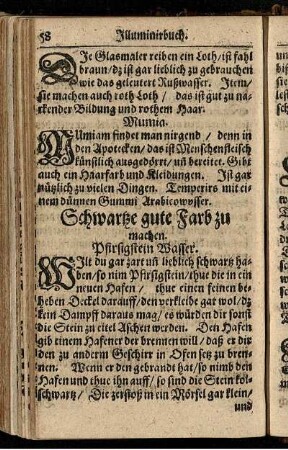 58 Illuminirbuch.
DJe Glasmaler reiben ein Loth/ist fahl
braun/dz ist gar lieblich zu gebrauchen
wie das geleutert Rußwasser. Jtem/
sie machen auch roth Loth / das ist gut zu na-
ckender Bildung und rothem Haar.
Mumia.
MUmiam findet man nirgend / denn in
den Apotecken/das ist Menschenfleisch
künstlich ausgedörrt/uñ bereitet. Gibt
auch ein Haarfarb und Kleidungen. Jst gar
nützlich zu vielen Dingen. Temperirs mit ei-
nem dünnen Gummi Arabicowysser.
Schwartze gute Farb zu
machen.
Pfirsigstein Wasser.
WJlt du gar zart uñ lieblich schwartz ha-
ben/so nim Pfirsigstein/thue die in ein
neuen Hafen / thue einen feinen be-
heben Deckel darauff/den verkleibe gar wol/dz
kein Dampff daraus mag/es würden dir sonst
die Stein zu eitel Aschen werden. Den Hafen
gib einem Hafener der brennen will/daß er dir
den zu anderm Geschirr in Ofen setz zu bren-
nen. Wenn er den gebrandt hat/so nimb den
Hafen und thue ihn auff/so sind die Stein kol-
schwartz/ Die zerstoß in ein Mörsel gar klein/
und